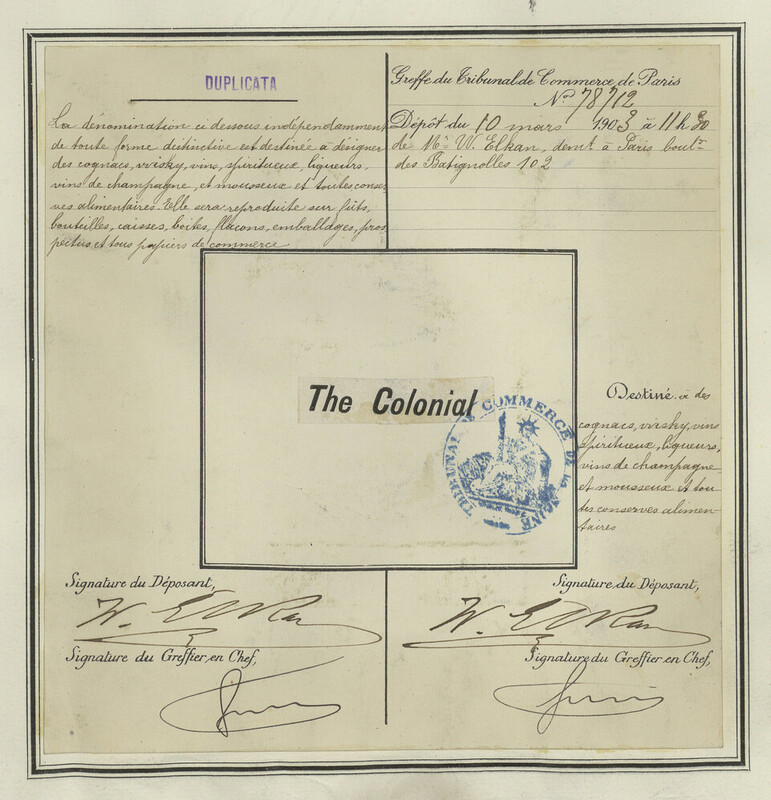 DUPLICATA
La dénomination ci dessous indépendamment
de toute forme distinctive est destinée à désigner
des cognacs, wisky, vins, spiritueux, liqueurs,
vins de champagne, et mousseux et toutes conser
ves alimentaires. Elle sera reproduite sur fûts,
bouteilles, caisses, boites, flacons, emballages, pros
pectus, et tous papiers de commerce
Greffe du Tribunal de Commerce de Paris
No 78712
Dépôt du 10 mars 1903 à 11 h 30
de Mr W. Elkan, demt à Paris boulr
des Batignolles 102
The Colonial
TRIBUNAL DE COMMERCE DE LA SEINE
Destiné à des
cognacs, wisky, vins
spiritueux, liqueurs,
vins de champagne
et mousseux et tou
tes conserves alimen-
taires
Signature du Déposant,
W. Elkan
Signature du Greffier en Chef,
Signature du Déposant,
W. Elkan
Signature du Greffier en Chef,